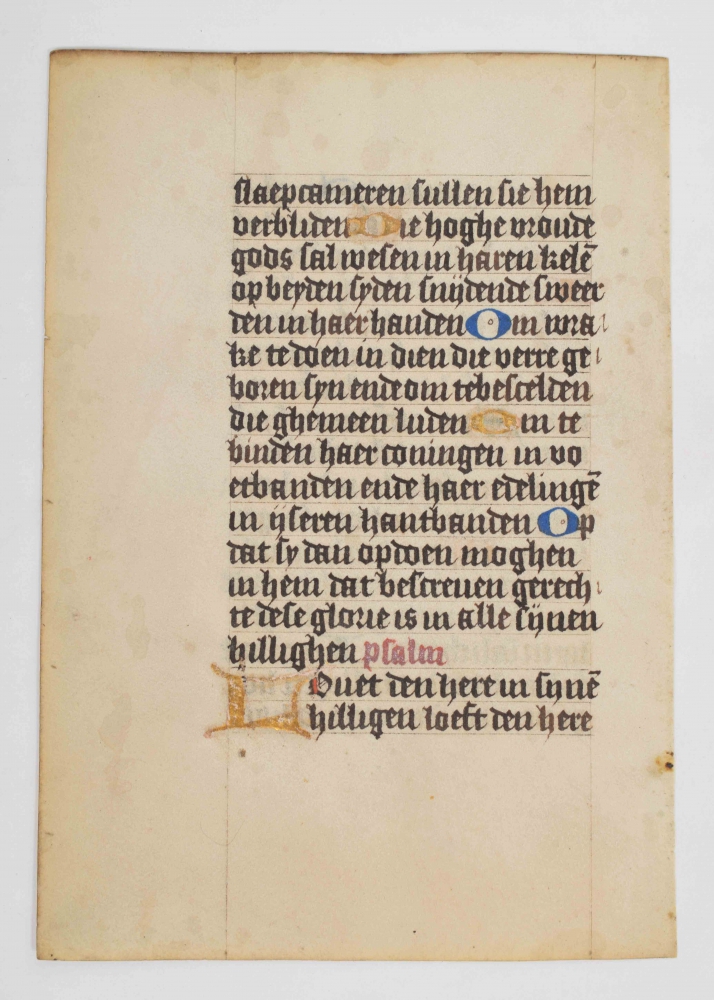 slaepcameren sullen sie hem
verbliden Die hoghe vroude
gods sal wesen in haren kelē
op beyden syden snijdende sweer
den in haer handen Om wra
ke te doen in dien die verre ge
boren syn ende om te bescelden
die ghemeen luden Om te
binden haer coningen in vo
etbanden ende haer edelingē
in ijseren hantbanden Op
dat sy dan opdoen moghen
in hem dat bescreuen gerech
te dese glorie is in alle sijnen
hillighen psalm
Louet den here in synē
hilligen loeft den here